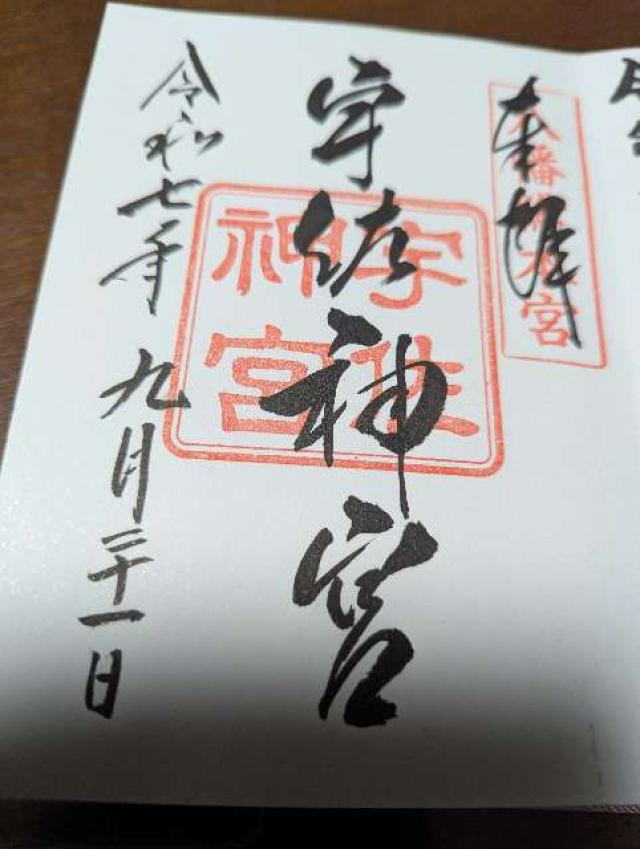 奉拝
八幡総本宮
宇佐神宮
宇佐
神宮
令和七年九月二十一日